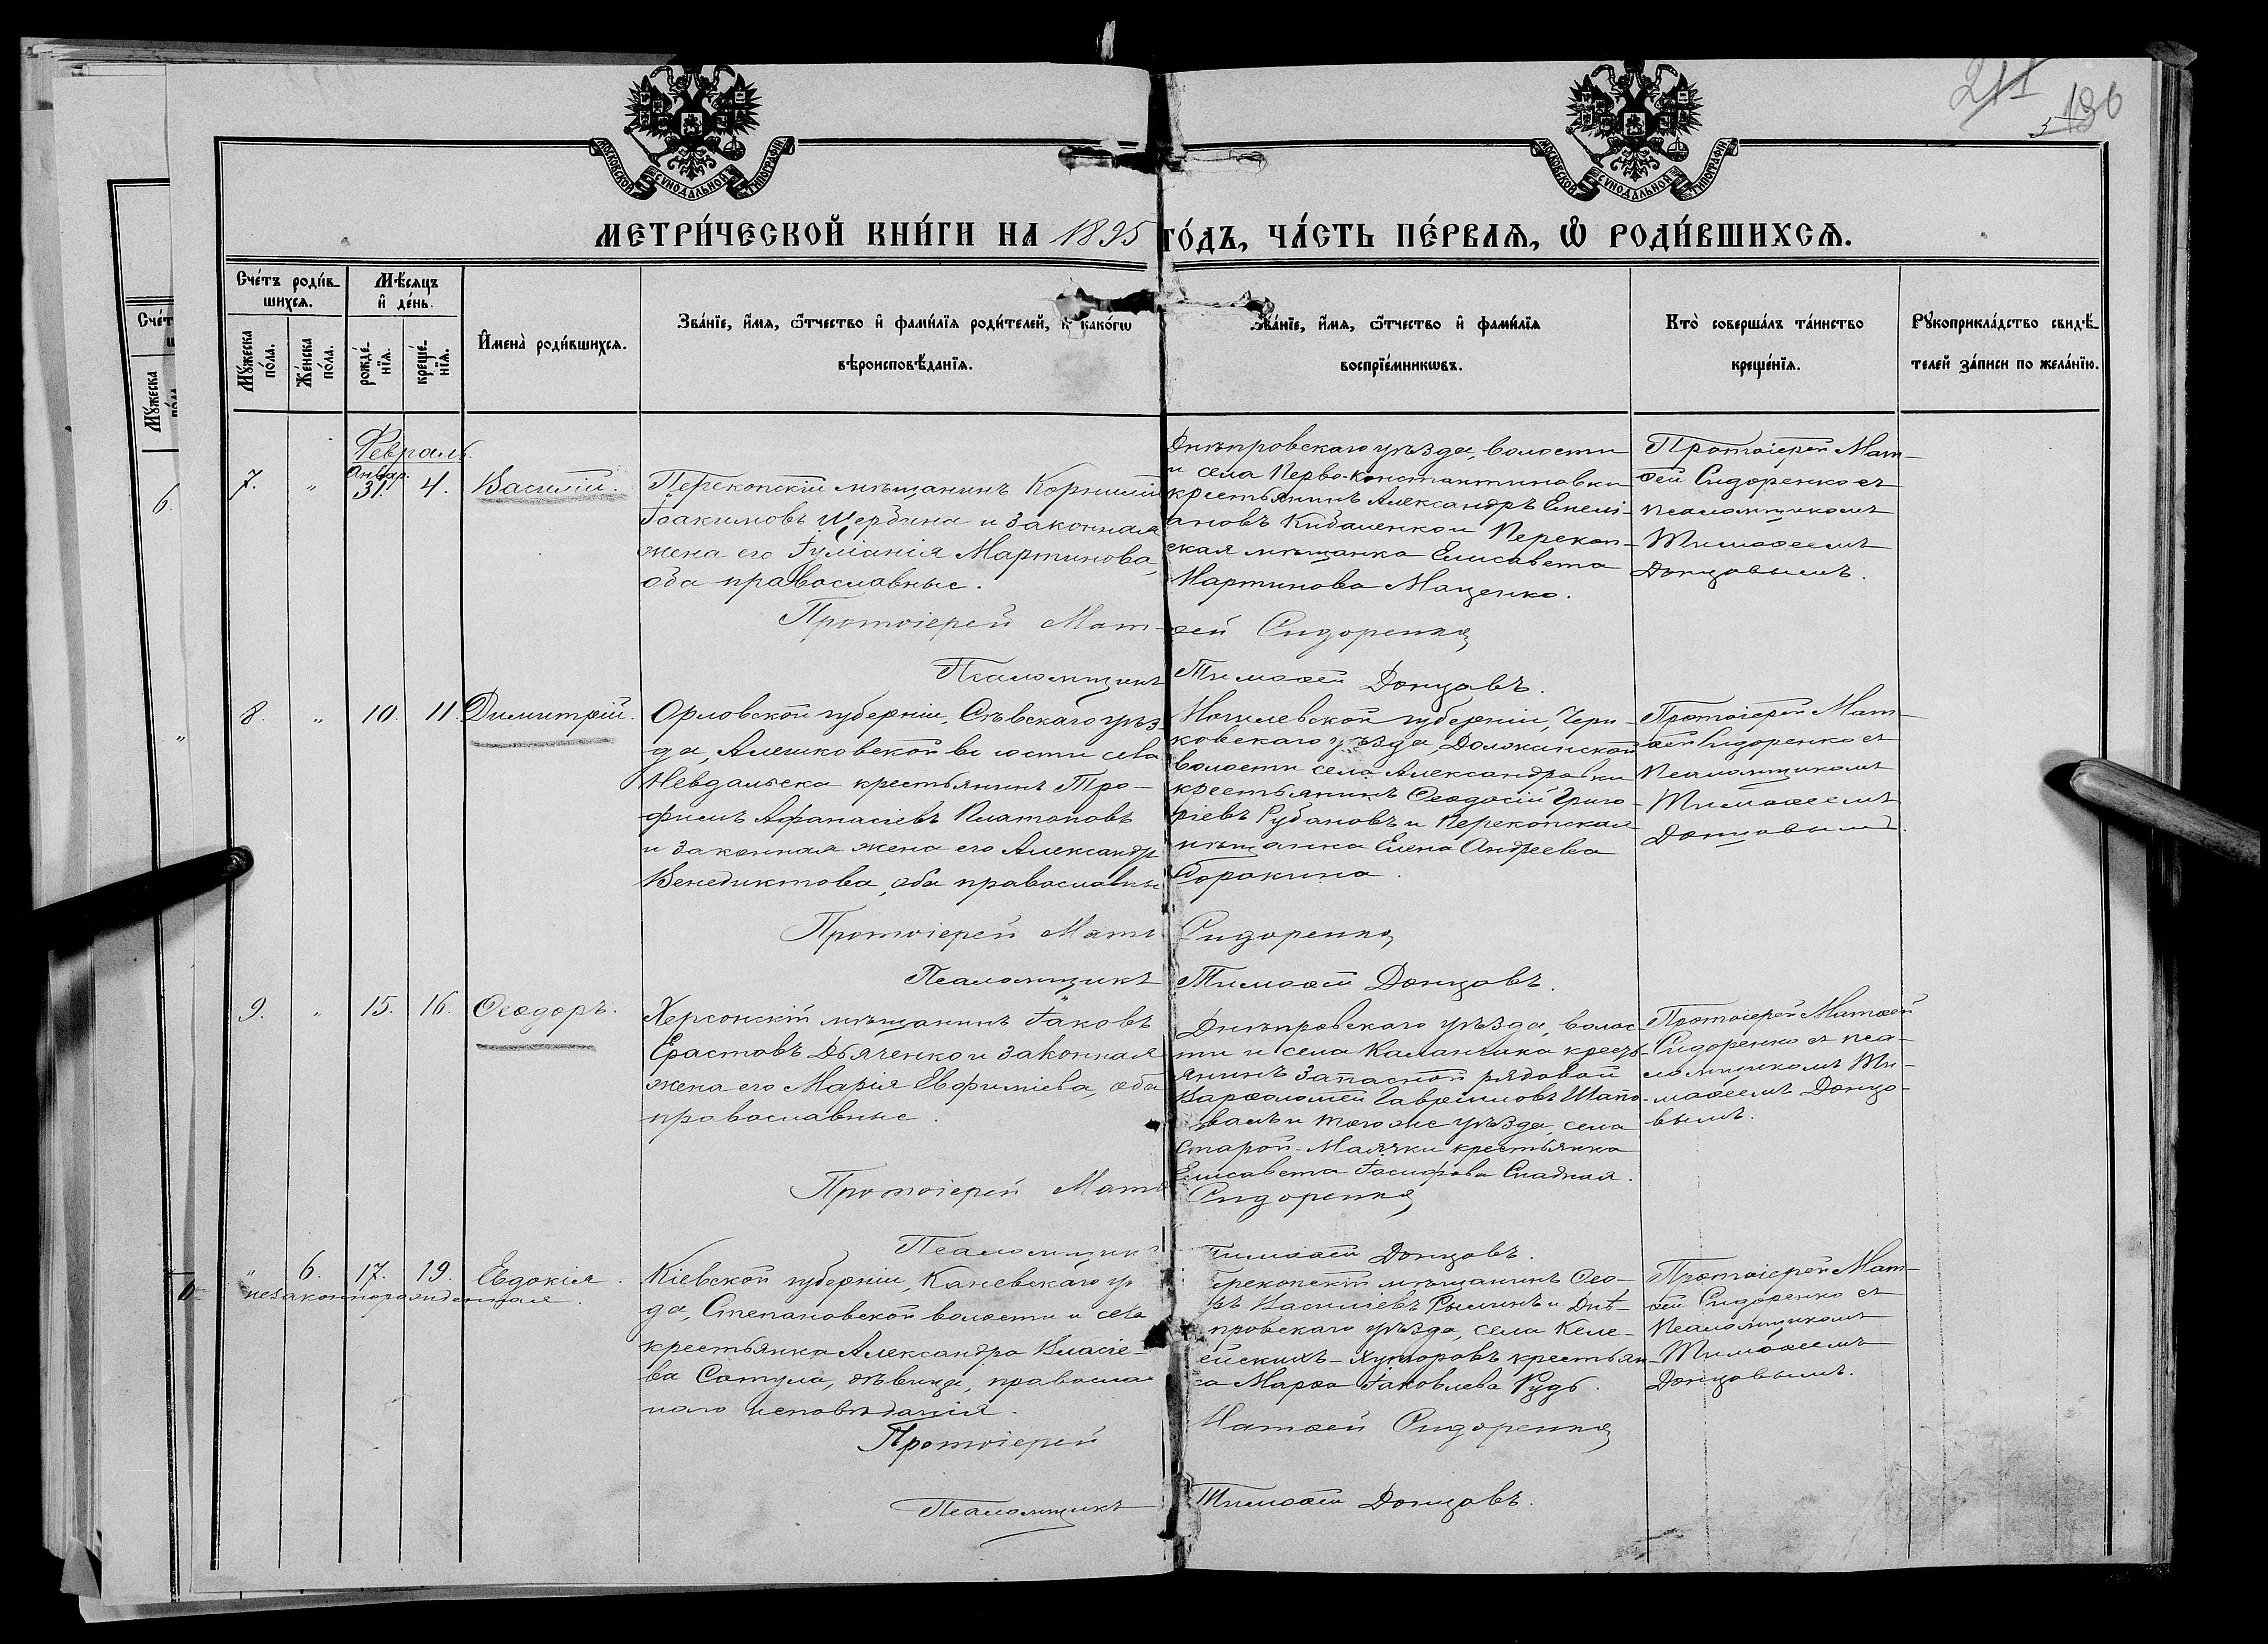 211
186
МОСКОВСКОЙ СУНОДАЛЬНОЙ ТИПОГРАФІИ
МОСКОВСКОЙ СУНОДАЛЬНОЙ ТИПОГРАФІИ
МЕТРИ́ЧЕСКОЙ КНИ́ГИ НА 1895 ГО́ДЪ, ЧА́СТЬ ПЕ́РВАѦ, Ѡ РОДИ́ВШИХСѦ.
Сче́тъ роди́в-
шихсѧ.
Мѣ́сѧцъ
и҆ де́нь.
Му́жеска по́ла.
Же́нска по́ла.
рожде́нїѧ.
креще́нїѧ.
И҆мена̀ роди́вшихсѧ.
Зва́нїе, и҆́мѧ, ѻ҆́тчество и҆ фами́лїѧ роди́телей, и҆ како́гѡ
вѣроисповѣ́данїѧ.
Зва́нїе, и҆́мѧ, ѻ҆́тчество и҆ фами́лїѧ
воспрїе́мникѡвъ.
Кто̀ соверша́лъ та́инство
креще́нїѧ.
Рꙋкоприкла́дство свидѣ́-
телей за́писи по жела́нїю.
Сче́т
Му́жеска
по́ла
6.
Февраль.
7. " Январ. 31. 4. Василій.
Перекопскій мѣщанинъ Корнилій
Іоакимовъ Щербина и законная
жена его Іуліанія Мартинова,
оба православные.
Днѣпровскаго уѣзда, волости
и села Перво-Константиновки
крестьянинъ Александръ Емелі-
ановъ Кибаленко и Перекоп-
ская мѣщанка Елисавета
Мартинова Маценко.
Протоіерей Мат-
ѳей Сидоренко съ
псаломщикомъ
Тимоѳеемъ
Донцовымъ.
Протоіерей Мат-ѳей Сидоренко
Псаломщикъ Тимоѳей Донцовъ.
8. " 10. 11. Димитрій.
Орловской губерніи, Сѣвскаго уѣз-
да, Алешковской волости села
Невдальска крестьянинъ Тро-
фимъ Афанасіевъ Платоновъ
и законная жена его Александр
Венедиктова, оба православны
Могилевской губерніи, Чери-
ковскаго уѣзда, Должанской
волости села Александровки
крестьянинъ Ѳеодосій Григо-
ріевъ Рубановъ и Перекопская
мѣщанка Елена Андреева
Сорокина.
Протоіерей Мат-
ѳей Сидоренко съ
псаломщикомъ
Тимоѳеемъ
Донцовымъ.
Протоіерей Матѳ Сидоренко
Псаломщикъ Тимоѳей Донцовъ.
9. " 15. 16. Ѳеодоръ.
Херсонскій мѣщанинъ Іаковъ
Ерастовъ Дьяченко и законная
жена его Марія Евфиміева, оба
православные.
Днѣпровскаго уѣзда, волос-
ти и села Каланчака кресть-
янинъ запасной рядовой
Варѳоломей Гавріиловъ Шапо-
валъ и того же уѣзда, села
Старой-Маячки крестьянка
Елисавета Іосифова Сладкая.
Протоіерей Матѳей
Сидоренко съ пса-
ломщикомъ Ти-
моѳеемъ Донцо-
вымъ.
Протоіерей Матѳ Сидоренко
Псаломщик Тимоѳей Донцовъ.
" 6. 17. 19. Евдокія.
незаконнорожденная.
Кіевской губерніи, Каневскаго уѣ
да, Степановской волости и села
крестьянка Александра Власіе-
ва Сотула, дѣвица, православ
наго исповѣданія.
ерекопскій мѣщанинъ Ѳео-
ръ Василіевъ и Днѣ-
провскаго уѣзда, села Келе-
ейскихъ-хуторовъ крестьян-
ка Марѳа Іаковлева Рудь.
Протоіерей Мат-
ѳей Сидоренко съ
псаломщикомъ
Тимоѳеемъ
Донцовымъ.
Протоіерей Матѳей Сидоренко
Псаломщикъ Тимоѳей Донцовъ.